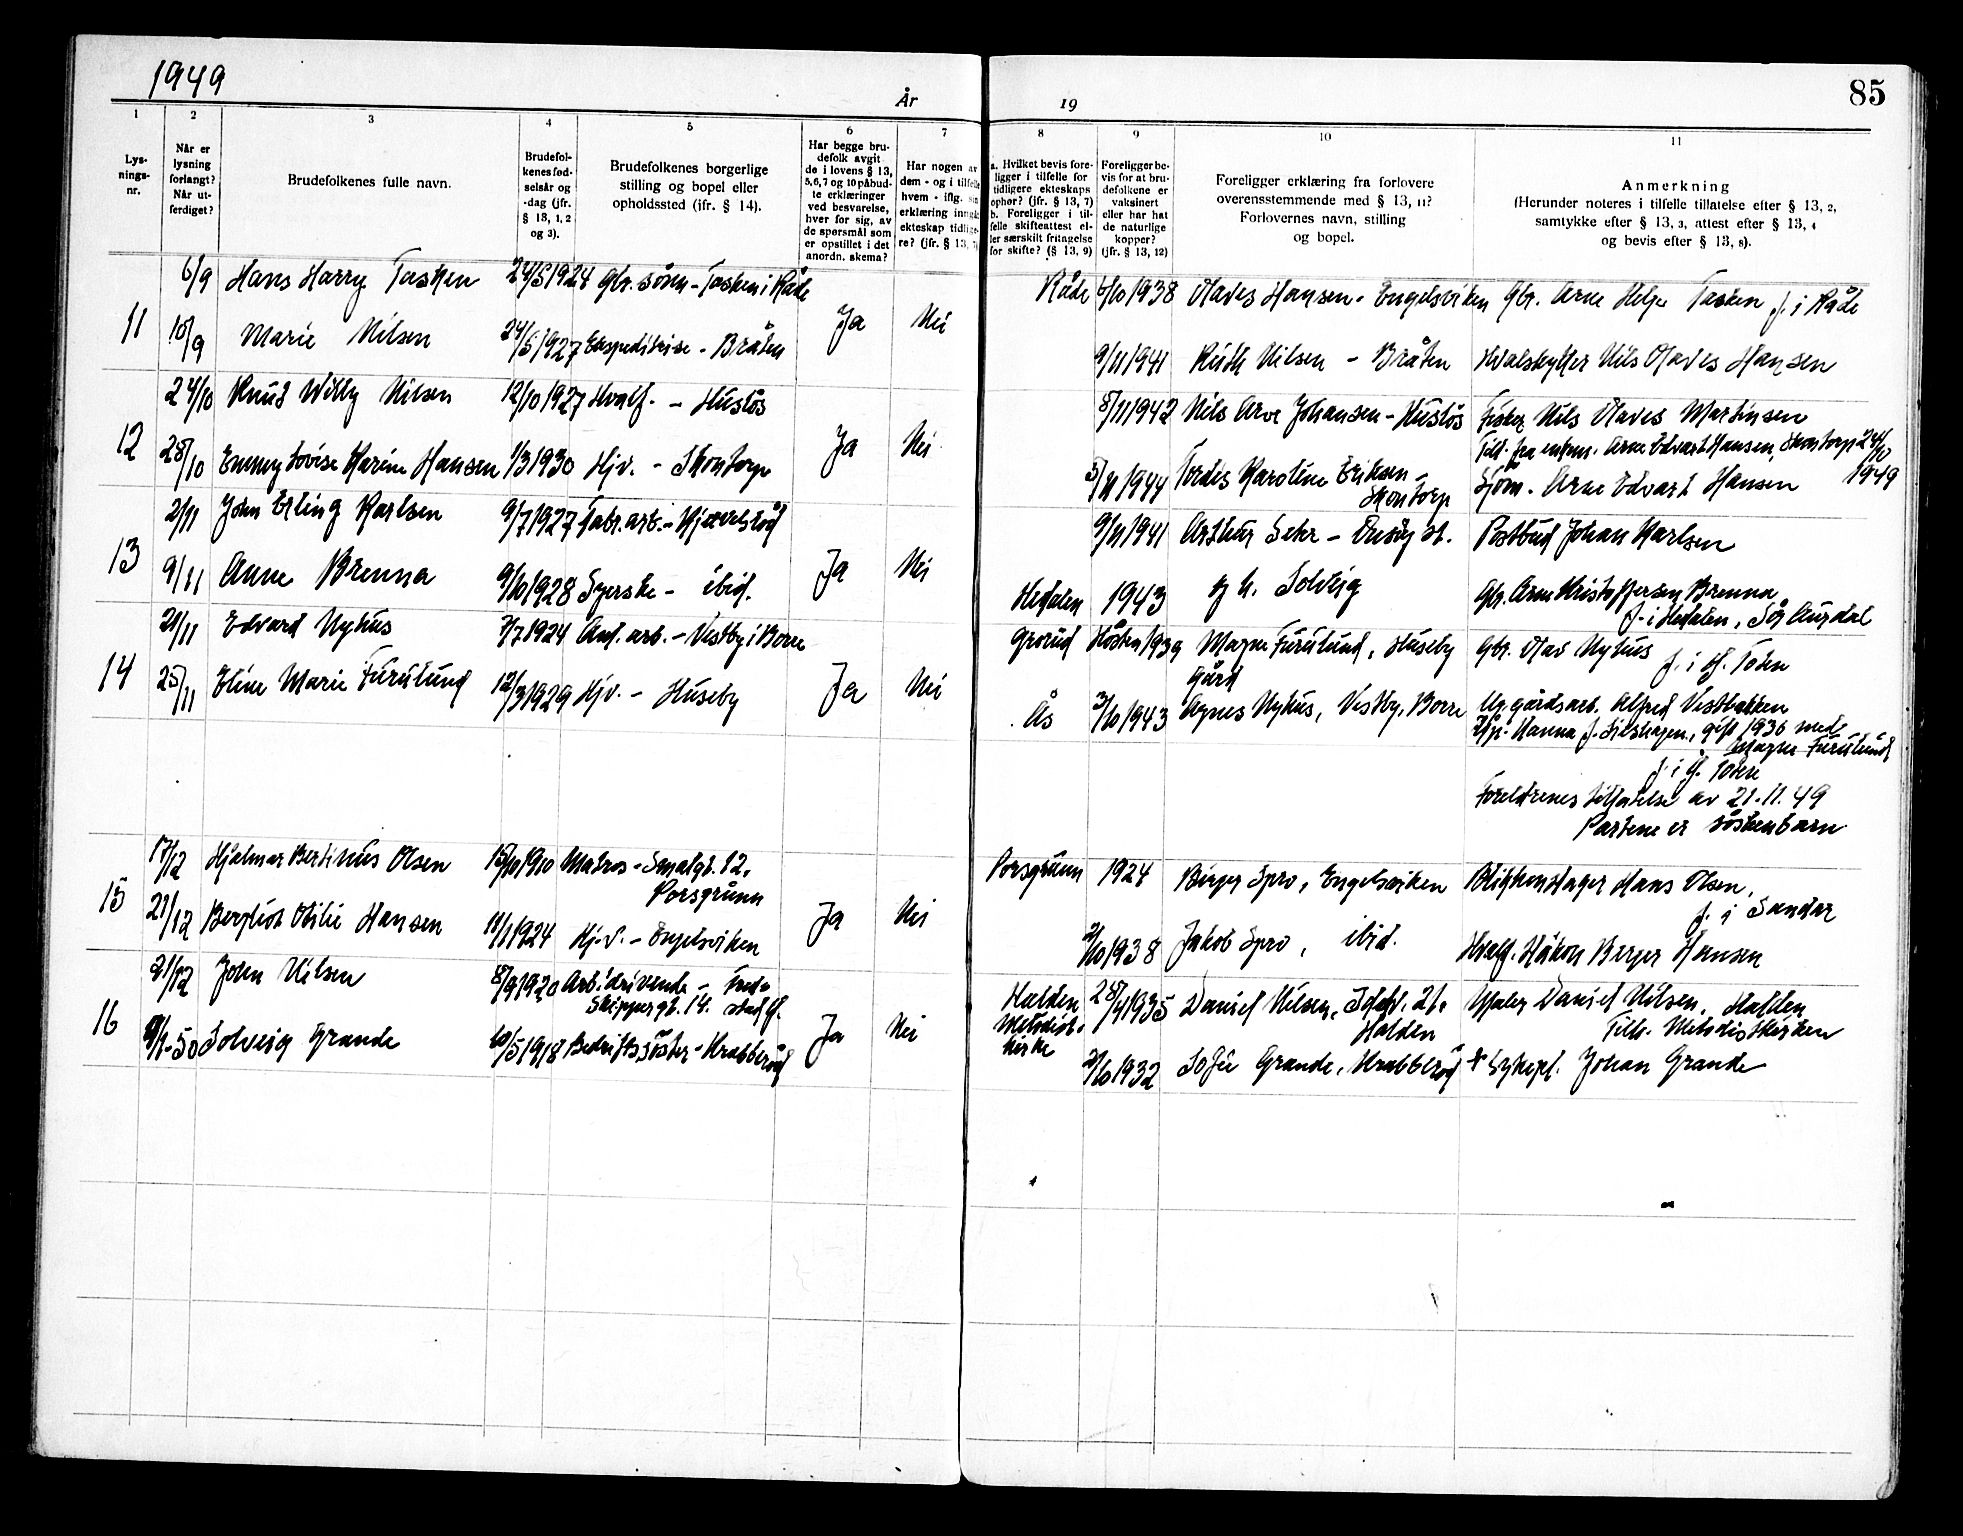 1949
År
19
85
1
2
3
4
5
6
7
8
9
10
11
Lys-
nings-
nr.
Når er
lysning
forlangt?
Når ut-
ferdiget?
Brudefolkenes fulle navn.
Brudefol-
kenes fød-
selsår og
-dag (jfr.
§ 13, 1, 2
og 3).
Brudefolkenes borgerlige
stilling og bopel eller
opholdssted (ifr. § 14).
Har begge bru-
defolk avgit
de i lovens § 13,
5, 6, 7 og 10 påbud-
te erklæringer
ved besvarelse,
hver for sig, av
de spørsmål som
er opstillet i det
anordn. skema?
Har nogen av
dem - og i tilfelle
hvem - iflg. sin
erklæring inngåt
ekteskap tidlige-
re? (jfr. § 13, 7)
a. Hvilket bevis fore-
ligger i tilfelle for
tidligere ekteskaps
ophør? (jfr. § 13, 7)
b. Foreligger i til-
felle skifteattest el-
ler særskilt fritagelse
for skifte? (§ 13, 9)
Foreligger be-
vis for at bru-
defolkene er
vaksinert
eller har hat
de naturlige
kopper?
(jfr. § 13, 12)
Foreligger erklæring fra forlovere
overensstemmende med § 13, 11?
Forlovernes navn, stilling
og bopel.
Anmerkning
(Herunder noteres i tilfelle tillatelse efter § 13, 2,
samtykke efter § 13, 3, attest efter § 13, 4
og bevis efter § 13, 8).
6/9 Hans Harry Tasken 24/5 1924 Gbr. sønn - Tasken i Råde Råde 6/10 1938 Olaves Hansen - Engelsviken Gbr. Arne Helge Tasken f. i Råde
11 10/9 Marie Nilsen 24/5 1927 Ekspeditrise - Bråten Ja Nei 9/11 1941 Ruth Nilsen - Bråten Hvalskytter Nils Olaves Hansen
24/10 Knut Willy Nilsen 12/10 1927 Hvalf. - Husløs 8/11 1942 Nils Arve Johansen - Husløs Fisker Nils Olaves Martinsen
Till. fra enkem. Arne Edvart Hansen, Skontorp 24/10
1949
12 28/10 Emmy Lovise Karine Hansen 1/3 1930 Hjv. - Skontorp Ja Nei 5/11 1944 Tordis Karoline Eriksen - Sjøm. Arne Edvart Hansen
Skontorp
2/11 John Erling Karlsen 9/7 1927 Fabr. arb. - Kjærelsrød 9/11 1941 Arthur Sehr - Onsøy st. Postbud Johan Karlsen
13 9/11 Anne Brenna 9/10 1928 Syerske - ibid. Ja Nei Hedalen 1943 og h. Solveig Gbr. Arne Kristoffersen Brenna
f. i Hedalen, Sør Aurdal
21/11 Edvard Nyhus 7/7 1924 Anl. arb. - Vestby i Borre Grorud Høsten 1939 Magne Furulund, Huseby Gbr. Olav Nyhus
gård f. i Ø. Toten
14 25/11 Eline Marie Furulund 12/3 1929 Hjv. - Huseby Ja Nei Ås 3/10 1943 Agnes Nyhus, Vestby, Borre Ug. gårdsarb. Alfred Vestbakken
Hjp. Hanna f. Silshagen, gift 1936 med
Magne Furulund
f. i Ø. Toten
Foreldrenes tillatelse av 21.11.49
Partene er søskenbarn
17/12 Hjalmar Bertinus Olsen 15/10 1910 Matros - Smalgt. 12, Porsgrunn 1924 Birger Spro, Engelsviken Blikkenslager Hans Olsen,
Porsgrunn f. i Sandar
15 21/12 Bergliot Otilie Hansen 11/1 1924 Hj.v. - Engelsviken Ja Nei 2/10 1938 Jakob Spro, ibid. Hvalf. Håkon Berger Hansen
21/12 John Nilsen 8/9 1920 Arb.idrivende - Fred-
Skippergt. 14. stad Halden 28/4 1935 Daniel Nilsen, 21, Maler Daniel Nilsen, Halden
Metodist- Halden Tilh. Metodistkirken
kirke
16 9/1-50 Solveig Grande 10/5 1918 Bedriftssøster - Krabberød Ja Nei 2/10 1932 Sofie Grande, Krabberød * Sykepl. Johan Grande